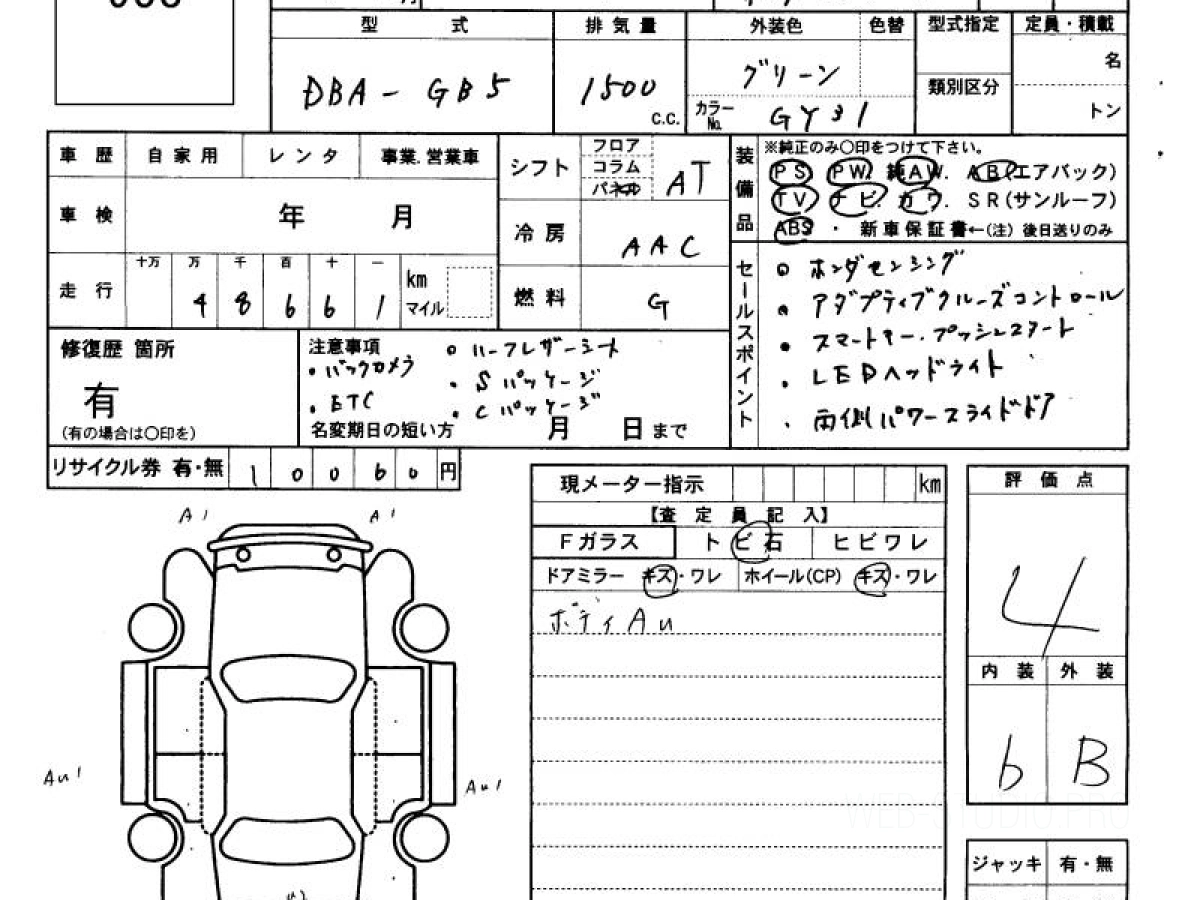 型 式 排気量 外装色 色替 型式指定 定員・積載
DBA - GB5 1500 c.c. グリーン 名
類別区分
カラーNo. GY31 トン
車歴 自家用 レンタ 事業.営業車
車検 年 月
走行 十万 万 千 百 十 一
4 8 6 6 1 km マイル
シフト フロア コラム パネル AT
冷房 AAC
燃料 G
装備品 ※純正のみ〇印をつけて下さい。
PS PW. 純AW. AB(エアバック)
TV ナビ. カワ. SR(サンルーフ)
ABS ・ 新車保証書←(注) 後日送りのみ
セールスポイント
・ホンダセンシング
・アダプティブクルーズコントロール
・スマートキー.プッシュスタート
・LEDヘッドライト
・両側パワースライドドア
修復歴 箇所
有
(有の場合は〇印を)
注意事項
・バックカメラ
・ETC
・ハーフレザーシート
・Sパッケージ
・Cパッケージ
名変期日の短い方 月 日まで
リサイクル券 有・無 1 0 0 6 0 円
現メーター指示 km
【査定員記入】
Fガラス トビ石 ヒビワレ
ドアミラー キズ・ワレ ホイール(CP) キズ・ワレ
ボディAu
評価点
4
内装 外装
b B
ジャッキ 有・無
A1 A1
Au1 Au1
WEB-STUDIO.PRO